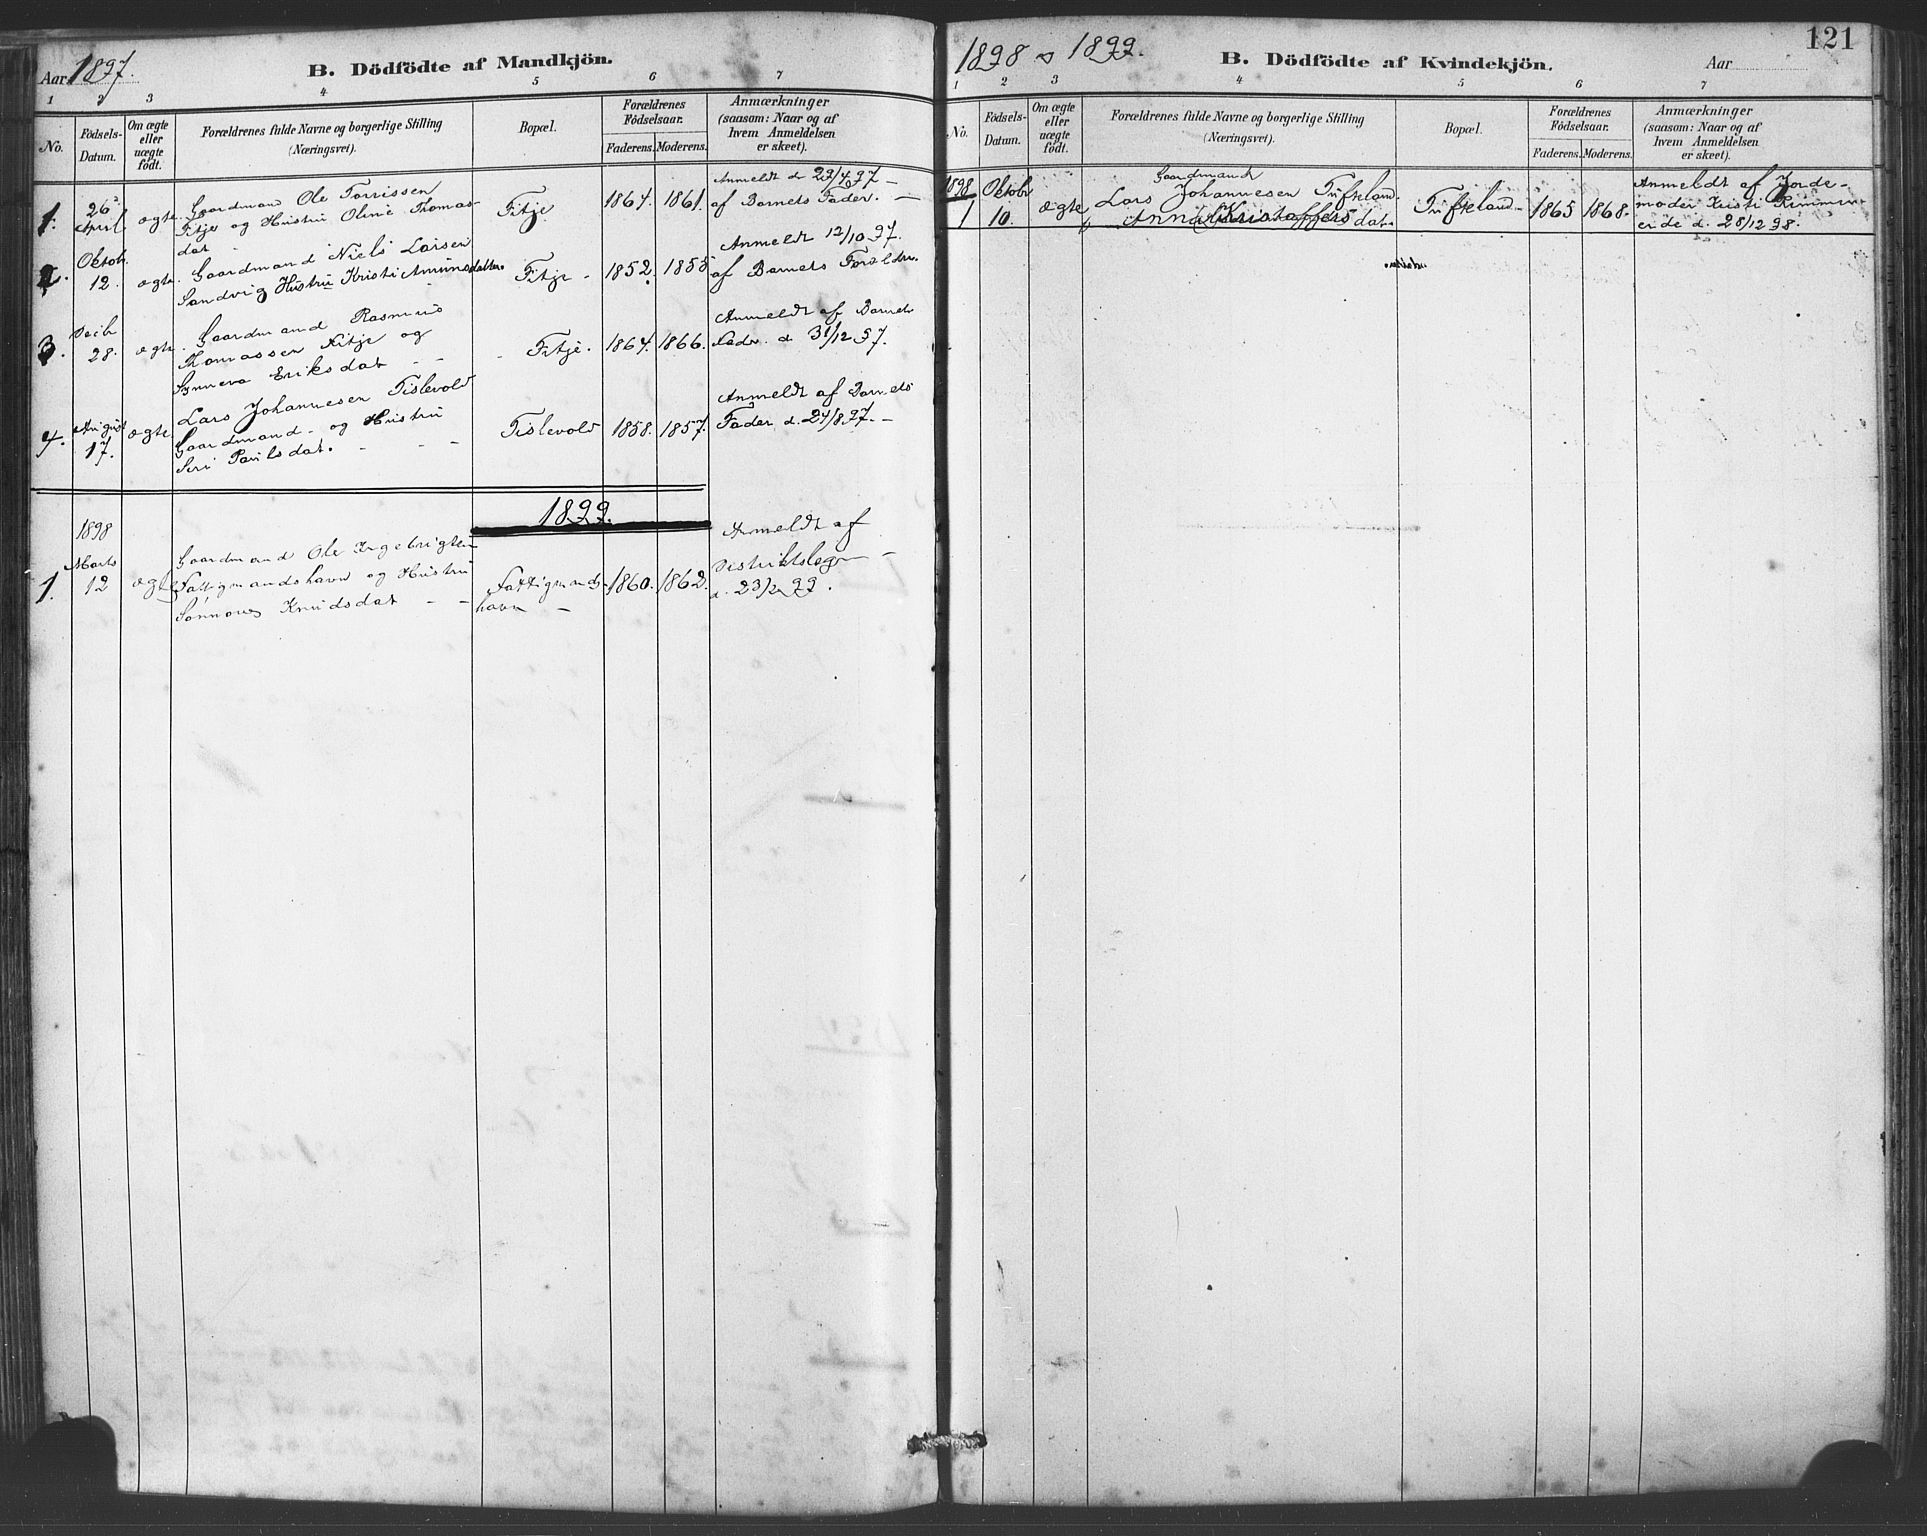 Aar 1897.
B. Dödfödte af Mandkjön.
1 2 3 4 5 6 7
No.
Födsels-
Datum.
Om ægte
eller
uægte
født.
Forældrenes fulde Navne og borgerlige Stilling
(Næringsvei).
Bopæl.
Forældrenes
Födselsaar.
Faderens. Moderens.
Anmærkninger
(saasom: Naar og af
hvem Anmeldelsen
er skeet).
1. 26 April ægte. Gaardmand Ole Torrissen
Fitje og Hustru Oline Thomas-
dat
Fitje 1864. 1861.
Anmeldt d 29/4 97 –
af Barnets Fader. –
2. Oktob. 12. ægte. Gaardmand Niels Larsen
Sandvig Hustru Kristi Amunsdatter.
Fitje - 1852. 1855
Anmeldt 12/10 97.
af Barnets Forældre.
3. Decbr 28. ægte. Gaardmand Rasmus
Thomassen Fitje og
Synneva Eriksdat - -
Fitje. 1864. 1866.
Anmeldt af Barnets
Fader. d. 31/12 97.
4. August 17. ægte. Lars Johannesen Tislevold
Gaardmand - og Hustru
Seri Paulsdat. - - -
Tislevold 1858. 1857.
Anmeldt af Barnets
Fader d. 24/8 97. –
1899.
1898
1. Marts 12 ægte Gaardmand Ole Ingebrigtsen
Fattigmandshavn og Hustru
Knudsdat - -
Fattigmands-
havn -
1860. 1862.
Anmeldt af
Distriktslægen –
d. 23/2 99.
121
1898 & 1899.
B. Dödfödte af Kvindekjön.
Aar
1 2 3 4 5 6 7
No.
Födsels-
Datum.
Om ægte
eller
uægte
födt.
Forældrenes fulde Navne og borgerlige Stilling
(Næringsvei).
Bopæl.
Forældrenes
Födselsaar.
Faderens. Moderens.
Anmærkninger
(saasom: Naar og af
hvem Anmeldelsen
er skeet).
1898
1 Oktobr 10. ægte Gaardmand
Lars Johannesen Tufteland.
Anna Kristoffersdat.
Tufteland - 1865 1868.
Anmeldt af Jorde-
moder Kristi
d. 28/12 98.